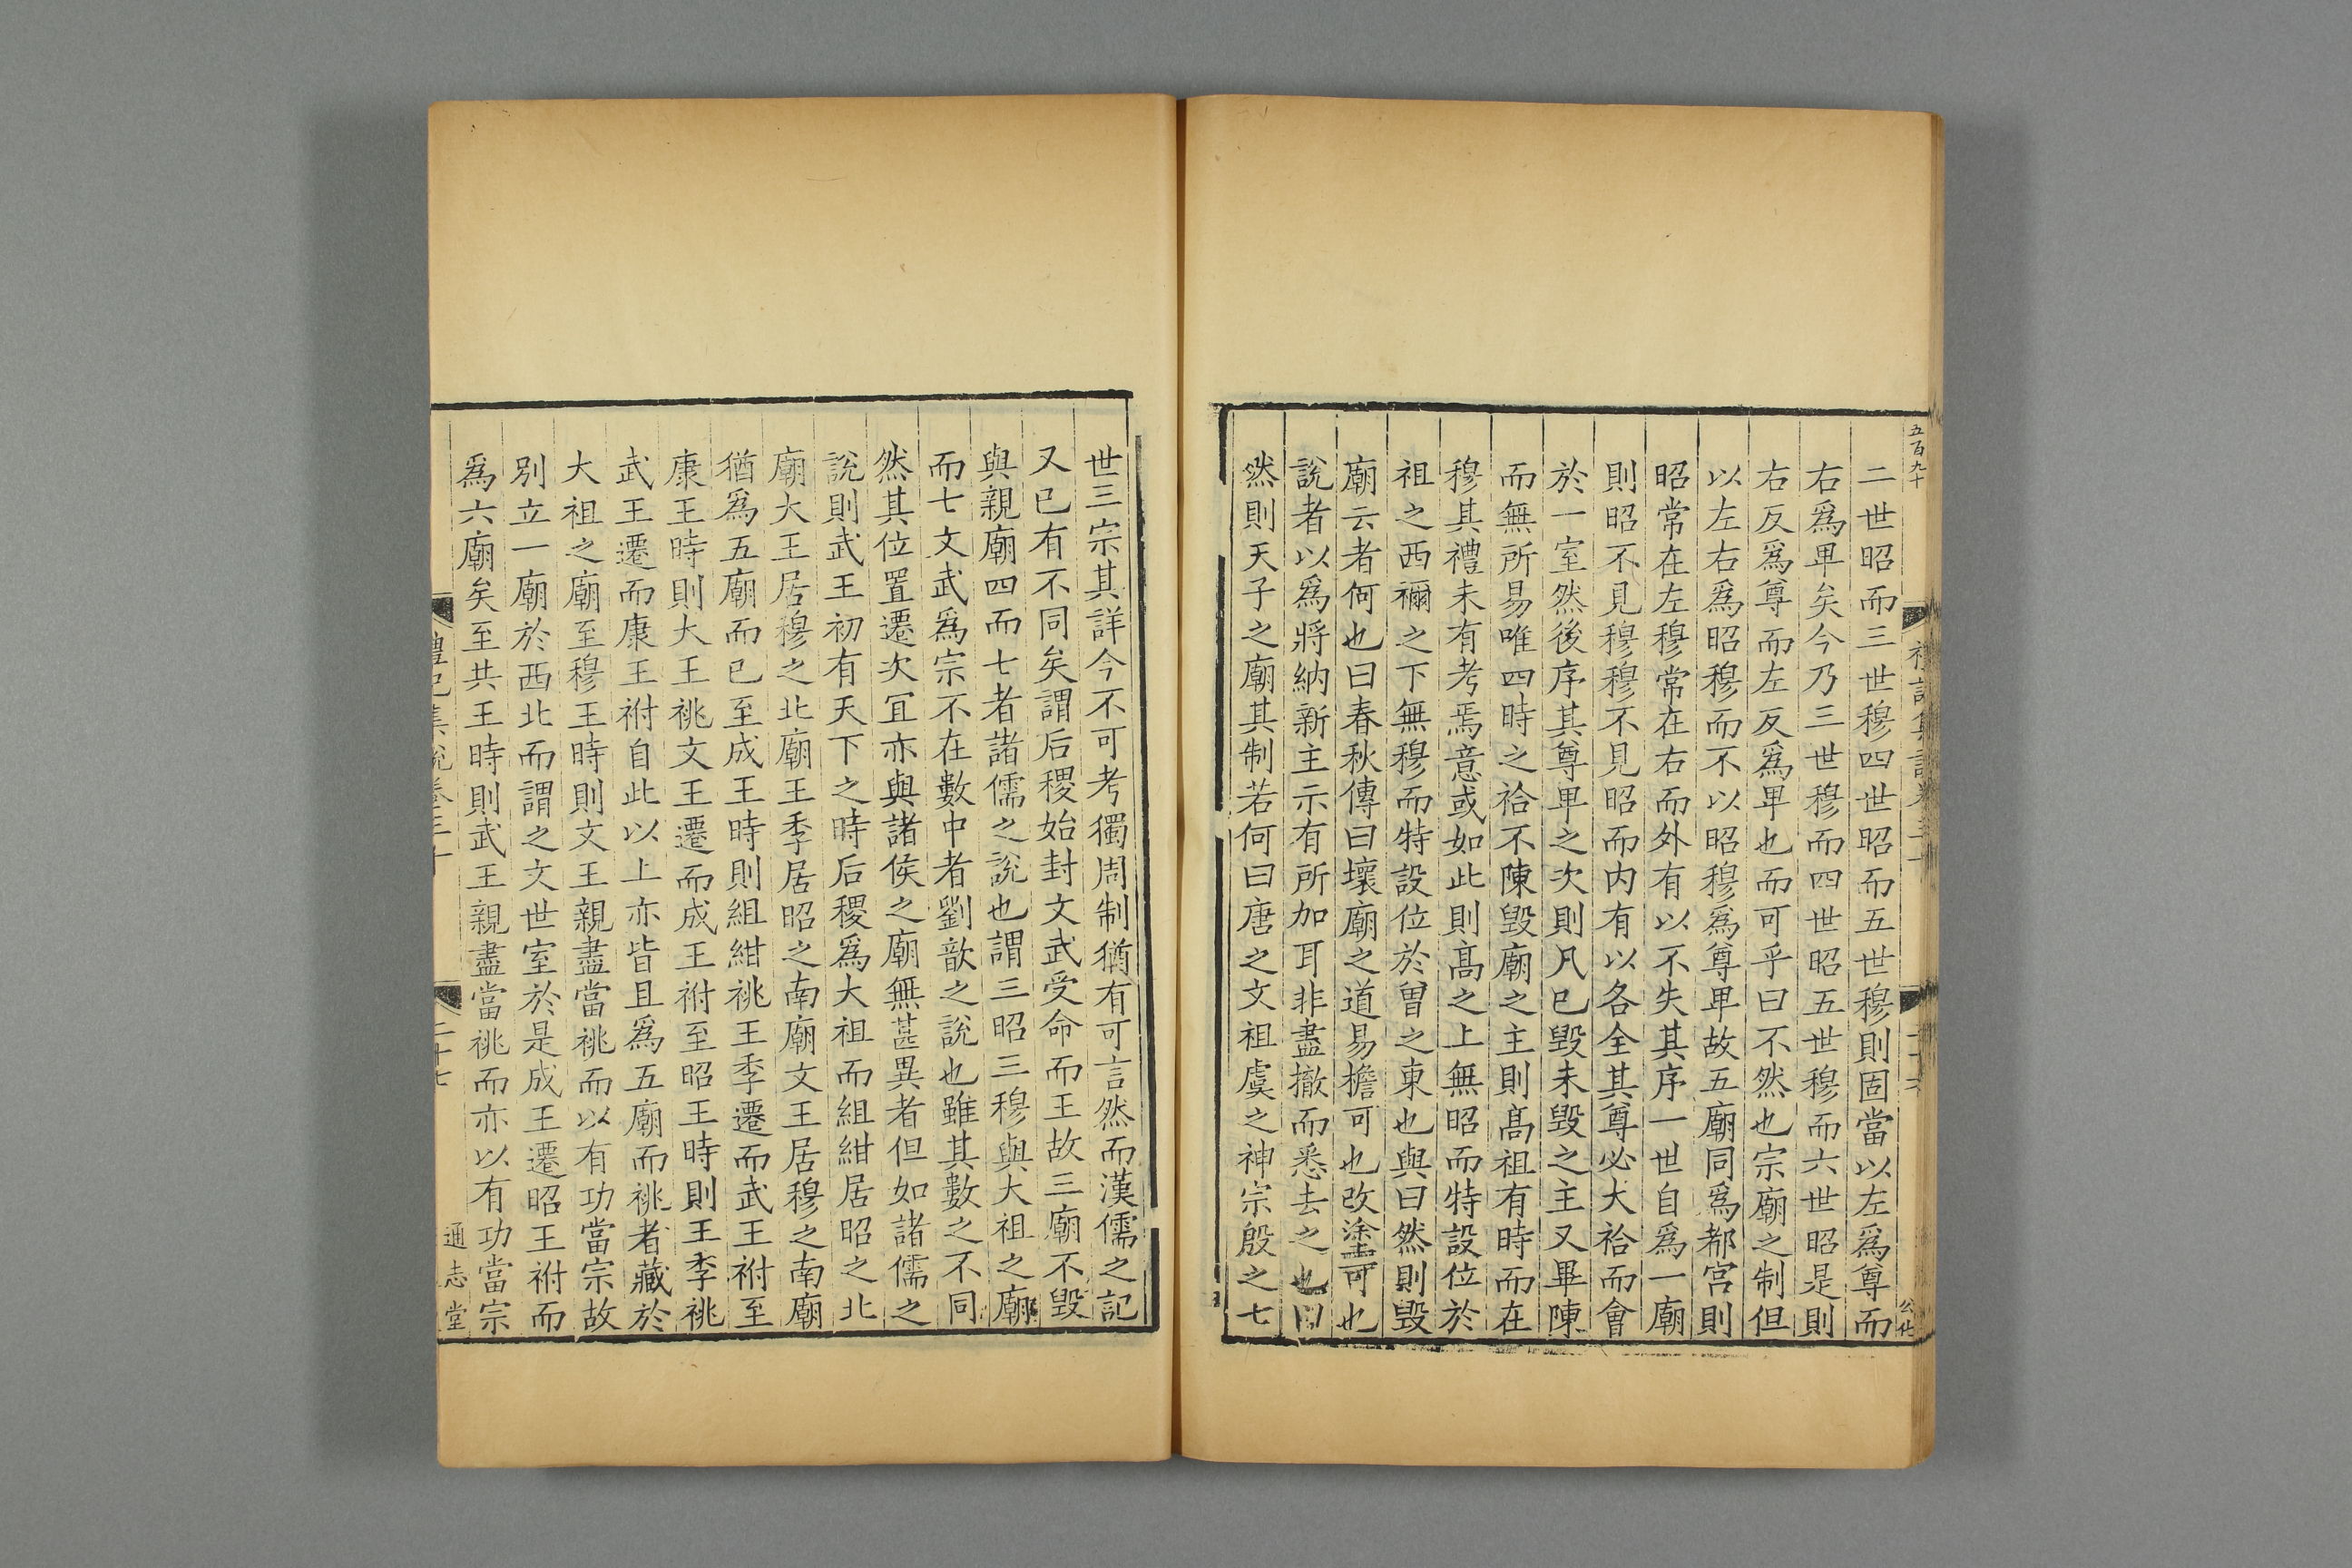 五百九十
二世昭而三世穆四世昭而五世穆則固當以左爲尊而
右爲卑矣今乃三世穆而四世昭五世穆而六世昭是則
右反爲尊而左反爲卑也而可乎曰不然也宗廟之制但
以左右爲昭穆而不以昭穆爲尊卑故五廟同爲都宮則
昭常在左穆常在右而外有以不失其序一世自爲一廟
則昭不見穆穆不見昭而内有以各全其尊必大祫而會
於一室然後序其尊卑之次則凡已毀未毀之主又畢陳
而無所易唯四時之祫不陳毀廟之主則髙祖有時而在
穆其禮未有考焉意或如此則髙之上無昭而特設位於
祖之西禰之下無穆而特設位於曽之東也與曰然則毀
廟云者何也曰春秋傳曰壞廟之道易檐可也改塗可也
說者以爲將納新主示有所加耳非盡撤而悉去之也曰
然則天子之廟其制若何曰唐之文祖虞之神宗殷之七
世三宗其詳今不可考獨周制猶有可言然而漢儒之記
又已有不同矣謂后稷始封文武受命而王故三廟不毀
與親廟四而七者諸儒之說也謂三昭三穆與大祖之廟
而七文武爲宗不在數中者劉歆之說也雖其數之不同
然其位置遷次冝亦與諸侯之廟無甚異者但如諸儒之
說則武王初有天下之時后稷爲大祖而組紺居昭之北
廟大王居穆之北廟王季居昭之南廟文王居穆之南廟
猶爲五廟而已至成王時則組紺祧王季遷而武王祔至
康王時則大王祧文王遷而成王祔至昭王時則王季祧
武王遷而康王祔自此以上亦皆且爲五廟而祧者藏於
大祖之廟至穆王時則文王親盡當祧而以有功當宗故
別立一廟於西北而謂之文世室於是成王遷昭王祔而
爲六廟矣至共王時則武王親盡當祧而亦以有功當宗
禮記集說卷三十
二十七
通志堂